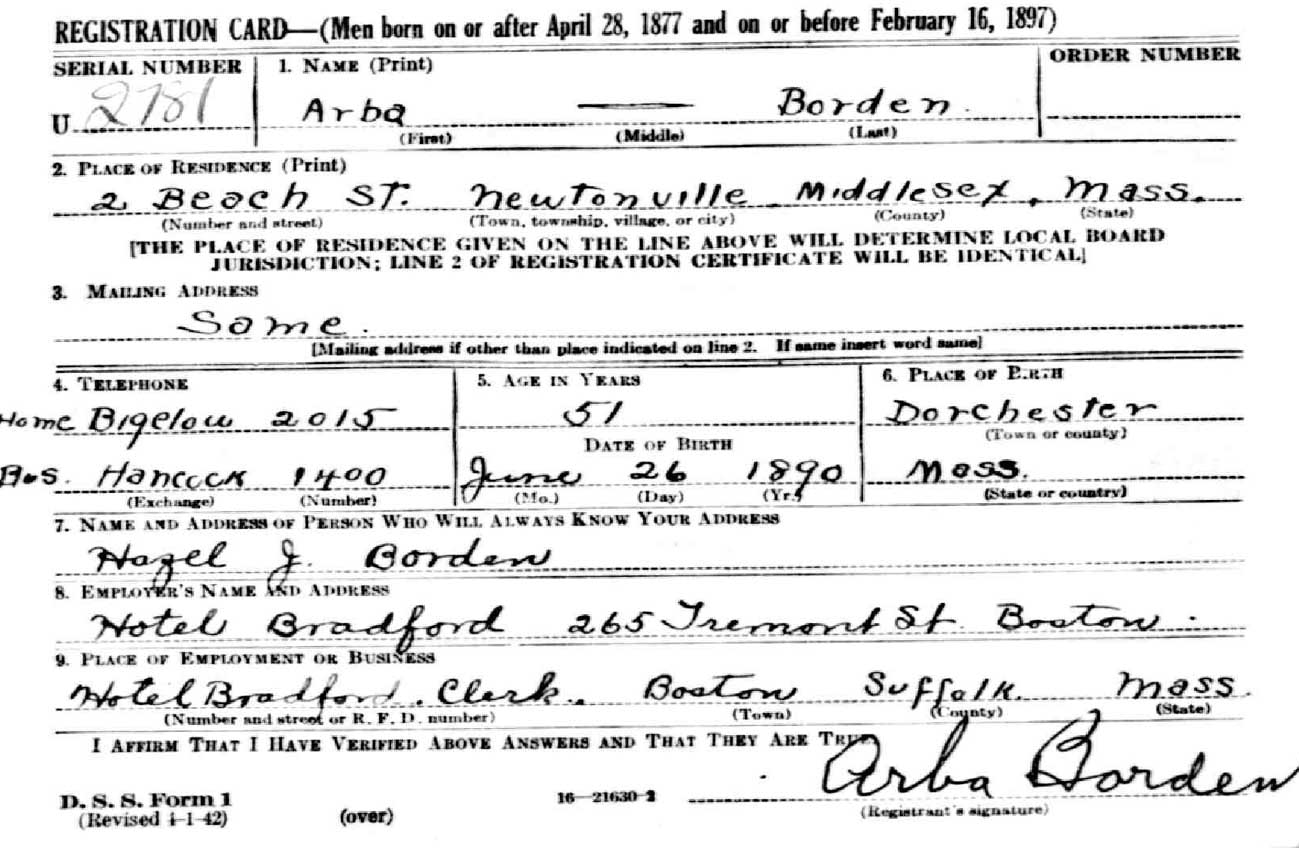 REGISTRATION CARD—(Men born on or after April 28, 1877 and on or before February 16, 1897)
SERIAL NUMBER 1. NAME (Print) ORDER NUMBER
U 2781 Arba — Borden.
(First) (Middle) (Last)
2. PLACE OF RESIDENCE (Print)
2 Beach ST. Newtonville. Middlesex, Mass.
(Number and street) (Town, township, village, or city) (County) (State)
[THE PLACE OF RESIDENCE GIVEN ON THE LINE ABOVE WILL DETERMINE LOCAL BOARD
JURISDICTION; LINE 2 OF REGISTRATION CERTIFICATE WILL BE IDENTICAL]
3. MAILING ADDRESS
Same.
[Mailing address if other than place indicated on line 2. If same insert word same]
4. TELEPHONE 5. AGE IN YEARS 6. PLACE OF BIRTH
Home Bigelow 2015 51 Dorchester
(Town or county)
DATE OF BIRTH
Bus. Hancock 1400 June 26 1890 Mass.
(Exchange) (Number) (Mo.) (Day) (Yr.) (State or country)
7. NAME AND ADDRESS OF PERSON WHO WILL ALWAYS KNOW YOUR ADDRESS
Hazel J. Borden
8. EMPLOYER'S NAME AND ADDRESS
Hotel Bradford 265 Tremont St. Boston.
9. PLACE OF EMPLOYMENT OR BUSINESS
Hotel Bradford. Clerk. Boston Suffolk. Mass.
(Number and street or R. F. D. number) (Town) (County) (State)
I AFFIRM THAT I HAVE VERIFIED ABOVE ANSWERS AND THAT THEY ARE TRUE.
Arba Borden
D. S. S. Form 1 16—21630-2
(Revised 4-1-42) (over) (Registrant's signature)